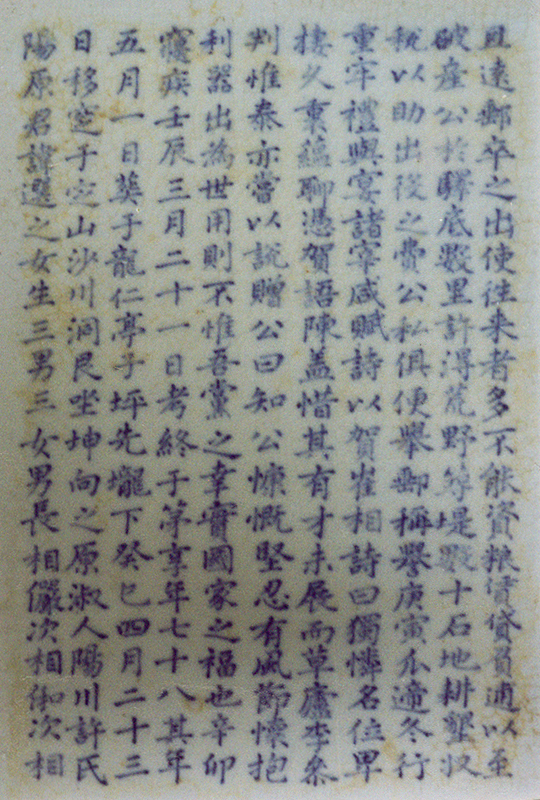 且遠郵卒之出使往来者多不能資粮債貸負逋以至
破産公於驛底數里許得荒野築堤數十石地耕墾収
税以助出役之費公私俱便擧郵稱譽庚寅瓜遞冬行
重牢禮與宴諸宰咸賦詩以賀崔相詩曰獨憐名位卑
棲久重蘊聊憑賀語陳盖惜其有才未展而草廬李參
判惟泰亦嘗以說贈公曰知公慷慨堅忍有風節懷抱
利器出為世用則不惟吾黨之幸實國家之福也辛卯
寢疾壬辰三月二十一日考終于第享年七十八其年
五月一日葬于龍仁亭子坪先壠下癸巳四月二十三
日移窆于定山沙川洞艮坐坤向之原淑人陽川許氏
陽原君諱選之女生三男三女男長相儼次相伽次相